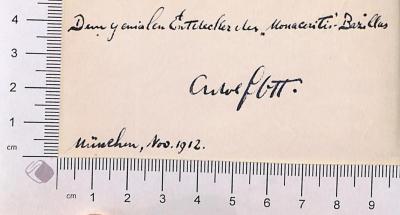 Dem genialen Entdecker des „Monacensis“-Bazillus
Adolf Ott.
München, Nov. 1912.
4
3
2
1
cm
cm 1 2 3 4 5 6 7 8 9